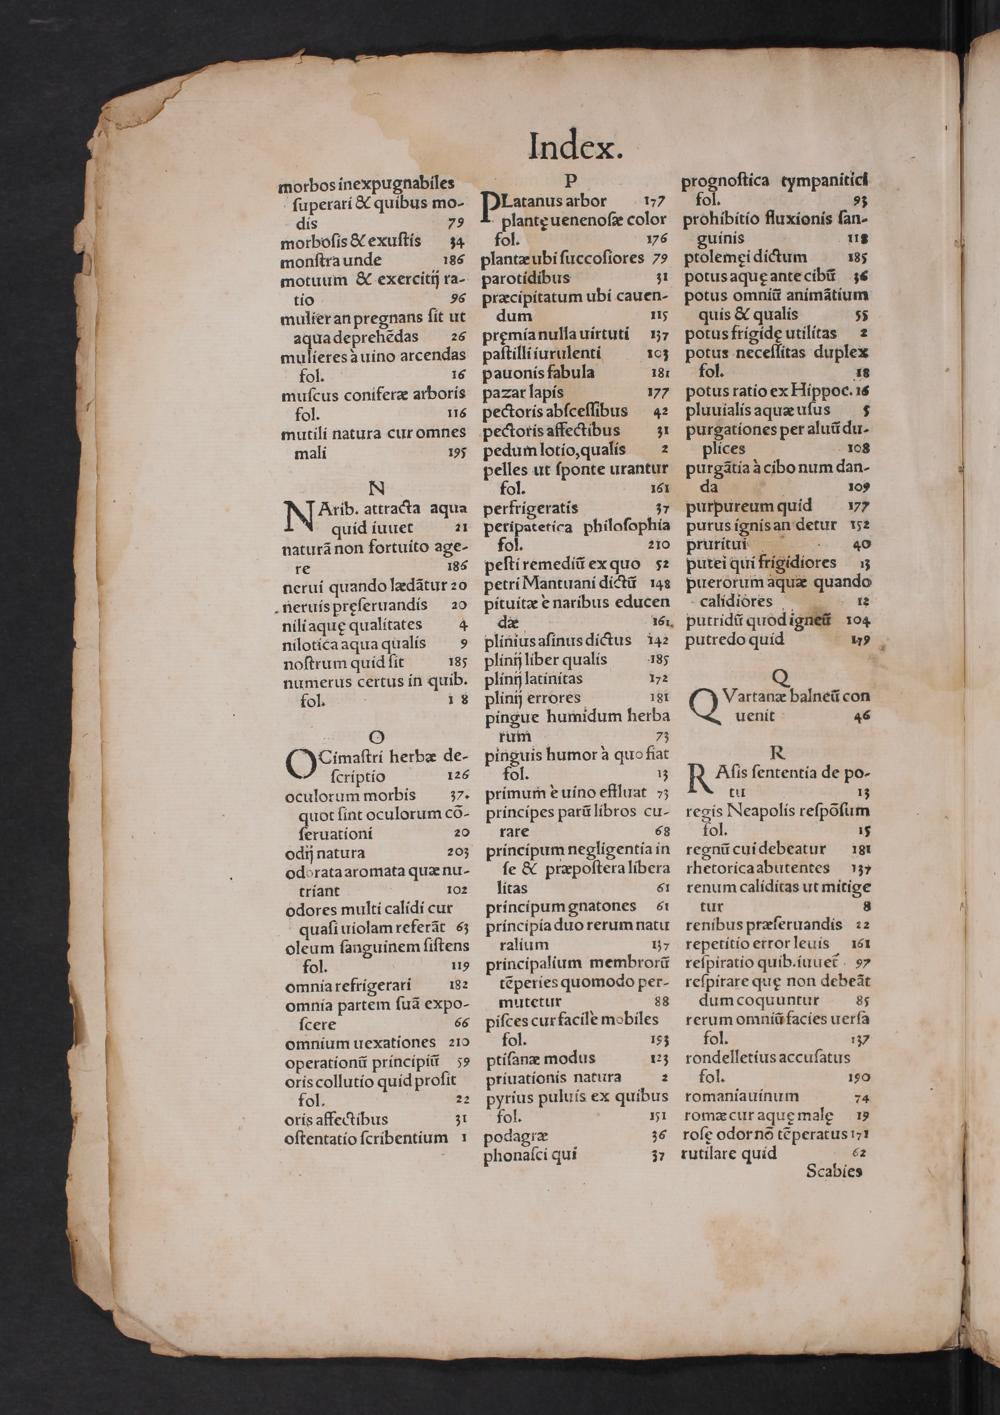 Index.
morbos inexpugnabiles
ſuperari & quibus mo-
dis 79
morboſis & exuſtis 34
monſtra unde 186
motuum & exercitij ra-
tio 96
mulier an pregnans ſit ut
aqua deprehēdas 26
mulieres à uino arcendas
fol. 16
muſcus coniferæ arboris
fol. 116
mutili natura cur omnes
mali 195
N
NArib. attracta aqua
quid iuuet 21
naturā non fortuito age-
re 186
nerui quando lædātur 20
neruis pręſeruandis 20
nili aquę qualitates 4
nilotica aqua qualis 9
noſtrum quid ſit 185
numerus certus in quib.
fol. 1 8
O
OCimaſtri herbæ de-
ſcriptio 126
oculorum morbis 37.
quot ſint oculorum cō-
ſeruationi 20
odij natura 203
odorata aromata quæ nu-
triant 102
odores multi calidi cur
quaſi uiolam referāt 63
oleum ſanguinem ſiſtens
fol. 119
omnia refrigerari 182
omnia partem ſuā expo-
ſcere 66
omnium uexationes 210
operationū principiū 59
oris collutio quid proſit
fol. 22
oris affectibus 31
oſtentatio ſcribentium 1
P
PLatanus arbor 177
plantę uenenoſæ color
fol. 176
plantæ ubi ſuccoſiores 79
parotidibus 31
præcipitatum ubi cauen-
dum 115
pręmia nulla uirtuti 137
paſtilli iurulenti 103
pauonis fabula 181
pazar lapis 177
pectoris abſceſſibus 42
pectoris affectibus 31
pedum lotio, qualis 2
pelles ut ſponte urantur
fol. 161
perfrigeratis 37
peripatetica philoſophia
fol. 210
peſti remediū ex quo 52
petri Mantuani dictū 148
pituitæ è naribus educen
dæ 161.
plinius aſinus dictus 142
plinij liber qualis 185
plinij latinitas 172
plinij errores 181
pingue humidum herba
rum 73
pinguis humor à quo fiat
fol. 13
primum è uino effluat 73
principes parū libros cu-
rare 68
principum negligentia in
ſe & præpoſtera libera
litas 61
principum gnatones 61
principia duo rerum natu
ralium 137
principalium membrorū
tēperies quomodo per-
mutetur 88
piſces cur facile mobiles
fol. 193
ptiſanæ modus 123
priuationis natura 2
pyrius puluis ex quibus
fol. 151
podagræ 36
phonaſci qui 37
prognoſtica tympanitici
fol. 93
prohibitio fluxionis ſan-
guinis 118
ptolemęi dictum 185
potus aquę ante cibū 36
potus omniū animātium
quis & qualis 55
potus frigidę utilitas 2
potus neceſſitas duplex
fol. 18
potus ratio ex Hippoc. 16
pluuialis aquæ uſus 5
purgationes per aluū du-
plices 108
purgātia à cibo num dan-
da 109
purpureum quid 177
purus ignis an detur 152
pruritui 40
putei qui frigidiores 13
puerorum aquæ quando
calidiores 12
putridū quòd igneū 104
putredo quid 179
Q
QVartanæ balneū con
uenit 46
R
RAſis ſententia de po-
tu 13
regis Neapolis reſpōſum
fol. 15
regnū cui debeatur 181
rhetorica abutentes 137
renum caliditas ut mitige
tur 8
renibus præſeruandis 22
repetitio error leuis 161
reſpiratio quib. iuuet 97
reſpirare quę non debeāt
dum coquuntur 85
rerum omniū facies uerſa
fol. 137
rondelletius accuſatus
fol. 190
romania uinum 74
romæ cur aquę malę 19
roſę odor nō tēperatus 171
rutilare quid 62
Scabies